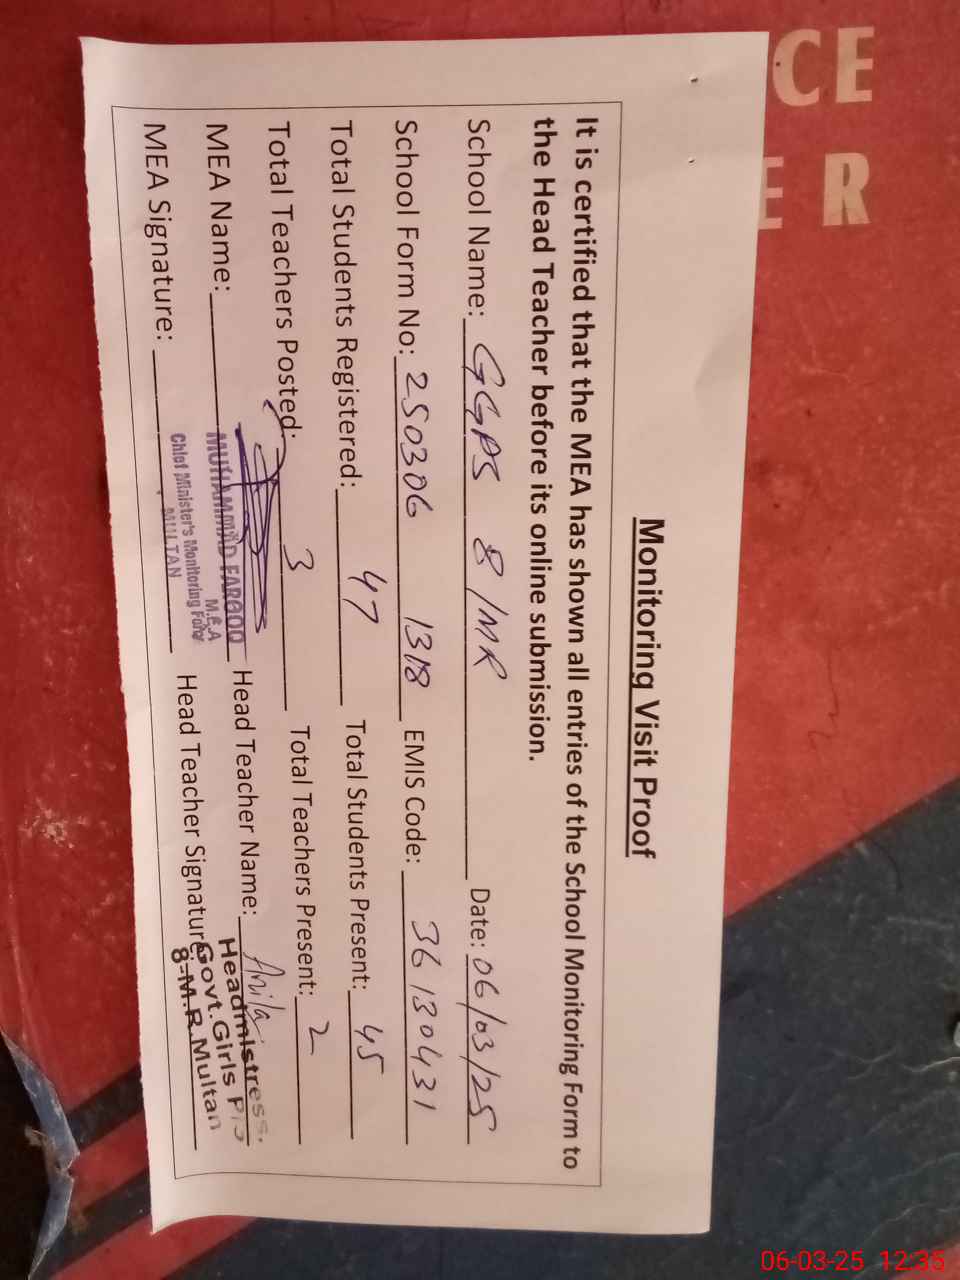 CE
ER
Monitoring Visit Proof
It is certified that the MEA has shown all entries of the School Monitoring Form to
the Head Teacher before its online submission.
School Name: GGPS 8/MR Date: 06/03/25
School Form No: 250306 1318 EMIS Code: 36130431
Total Students Registered: 47 Total Students Present: 45
Total Teachers Posted: 3 Total Teachers Present: 2
MEA Name: MUHAMMAD FAROOQ Head Teacher Name: Anila
M.E.A
Chief Minister's Monitoring Force
MULTAN
MEA Signature: Head Teacher Signature:
Headmistress.
Govt.Girls P/S
8-M.R.Multan
06-03-25 12:35